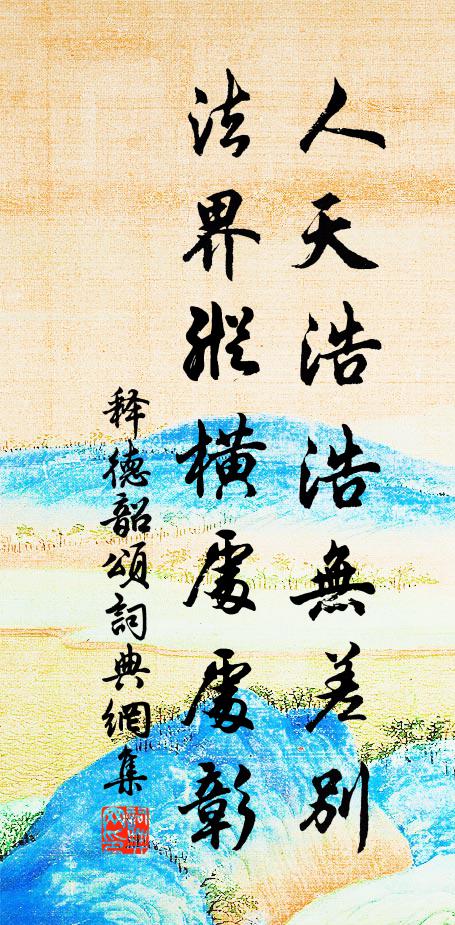 人天浩浩無差別
法界縱橫處處彰
释德韶頌詞典網集